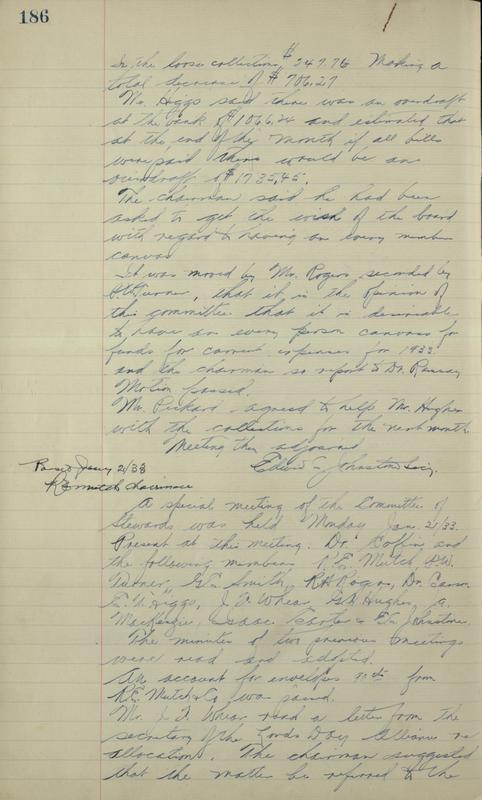 186
In the loose collection $247.76 Making a
total decrease of $706.27
Mr. Higgs said there was an overdraft
at the bank of $1066.24 and estimated that
at the end of the month if all bills
were paid there would be an
overdraft of $1735.45.
The chairman said he had been
asked to get the wish of the board
with regard to having an every member
canvas
It was moved by Mr. Rogers, seconded by
Turner, that it is the opinion of
this committee that it is desireable
to have an every person canvass for
funds for current expenses for 1933
and the chairman so report to Dr. Ramsay
Motion passed.
Mr. Pickard agreed to help Mr. Hughes
with the collections for the next month
Meeting then adjourned
Johnstone Secy.
Jany 21/33
R E Mutch Chairman
A special meeting of the Committee of
Stewards was held Monday Jan 21/33.
Present at this meeting. Dr. Coffin and
the following members R. E. Mutch, W.
Turner, G. Smith, R H Rogers, Dr. Carson
Higgs, J. F. Whear, Hughes, a
MacKenzie, Isaac Carter & Johnstone.
The minutes of two previous meetings
were read and adopted.
An account for envelopes from
R. E. Mutch & Co was passed.
Mr. J. F. Whear read a letter from the
secretary of the Lords Day Alliance re
allocation. The chairman suggested
that the matter be referred to the